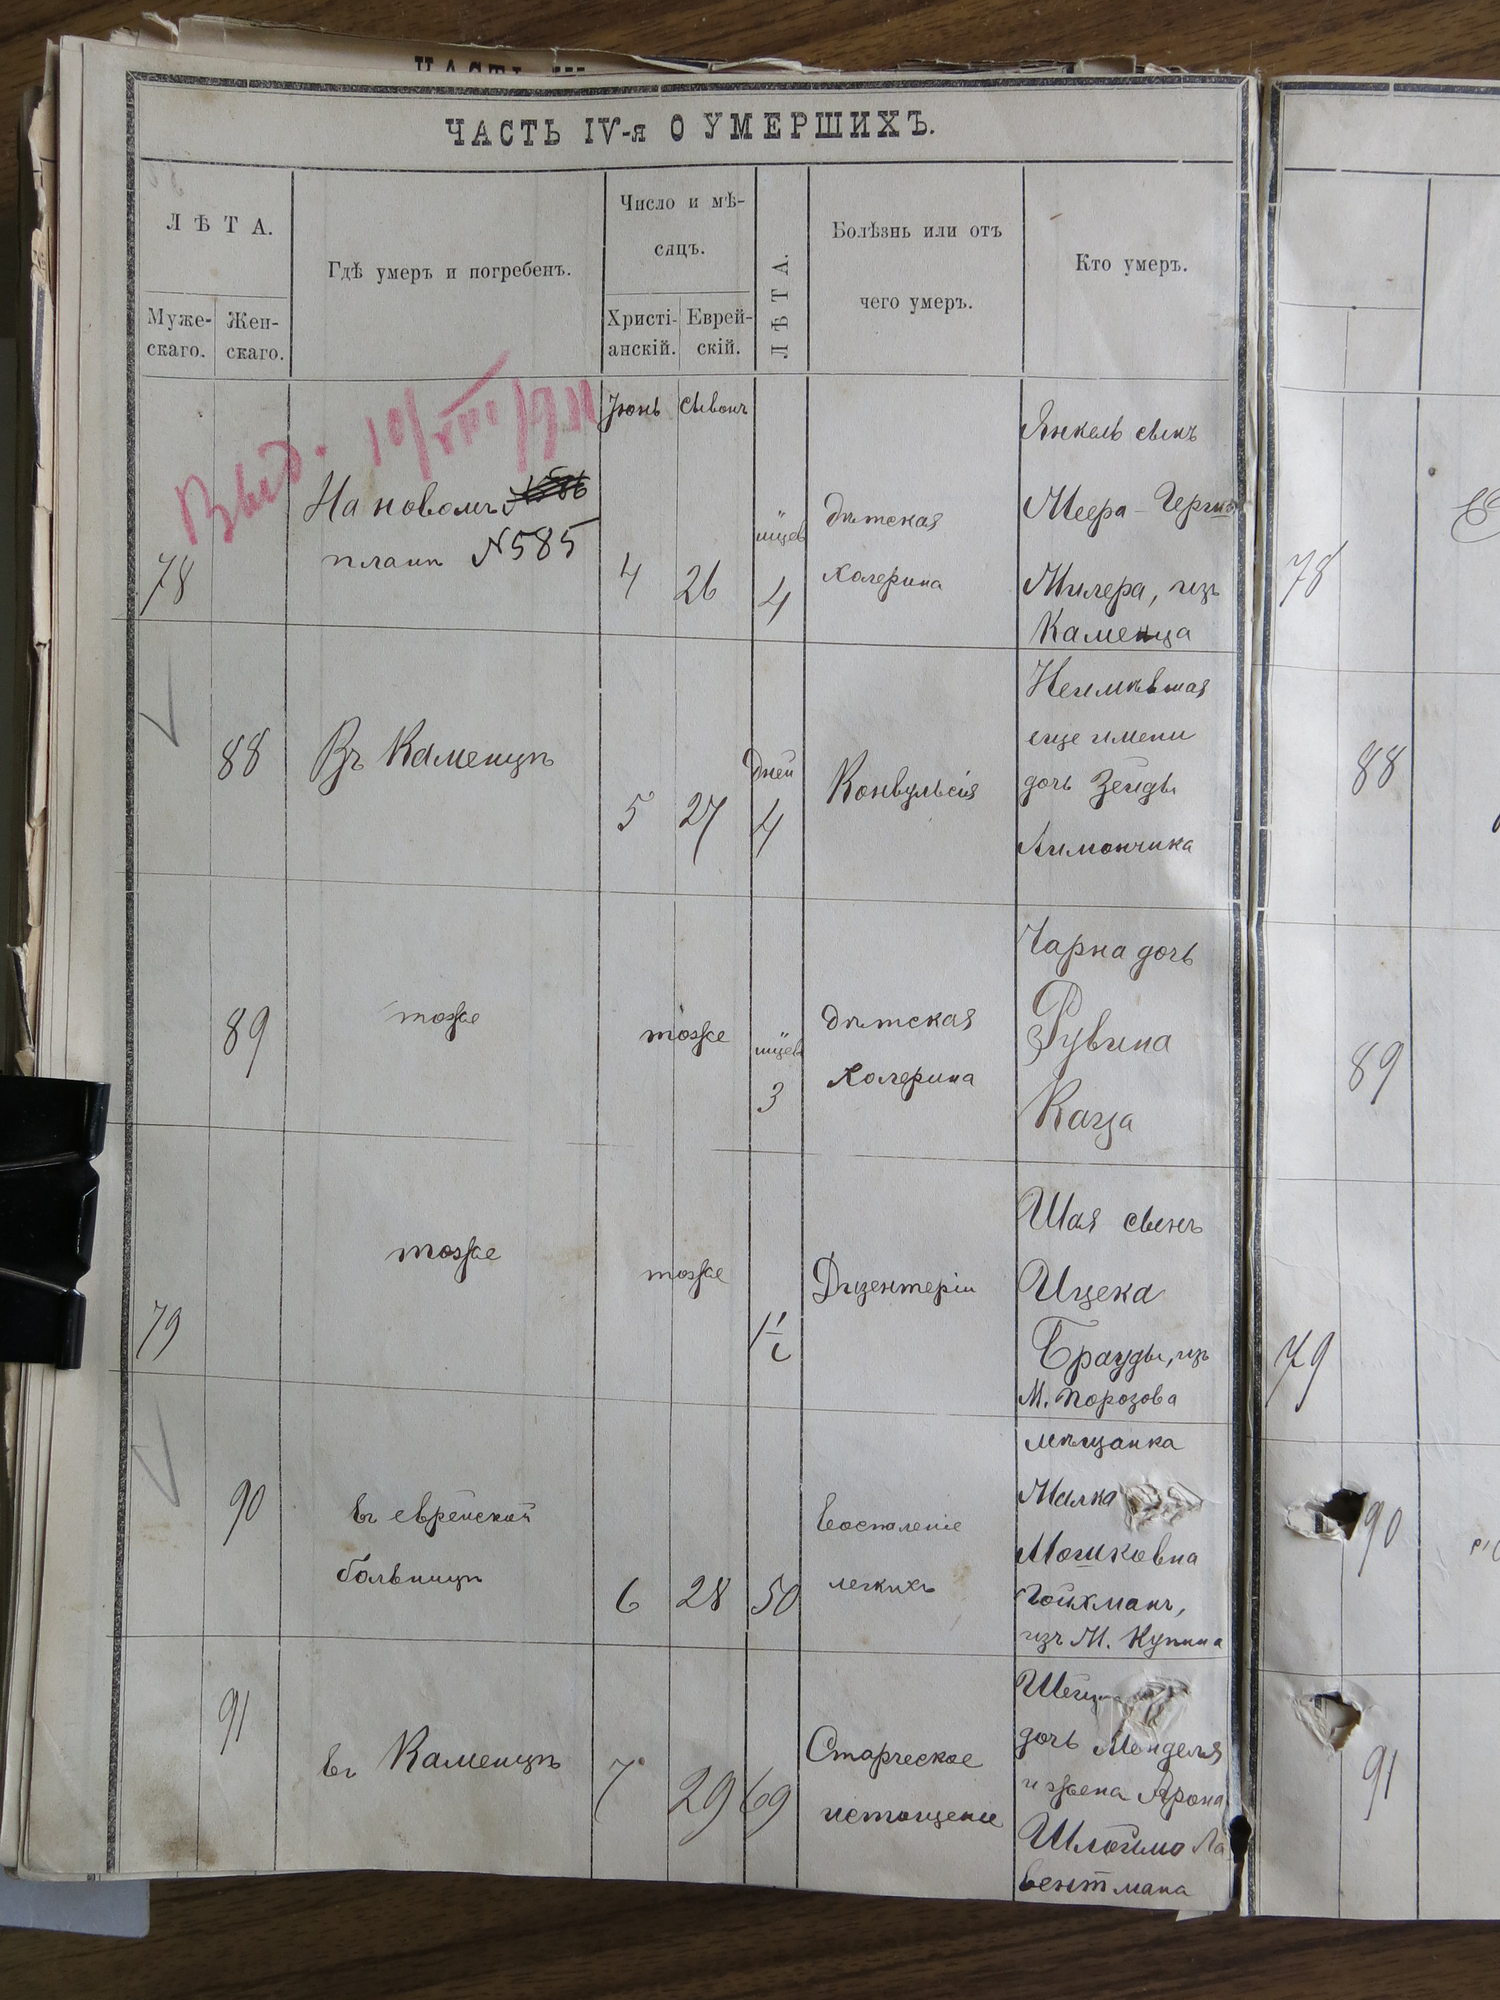 ЧАСТЬ IV-я О УМЕРШИХЪ.
ЛѢТА.
Мужескаго.
Женскаго.
Гдѣ умеръ и погребенъ.
Число и мѣ-
сяцъ.
Христі-
анскій.
Еврей-
скій.
ЛѢТА.
Болѣзнь или отъ
чего умеръ.
Кто умеръ.
Выд. 10/VIII/911
Іюнь Сывонъ
78
На новомъ
планѣ № 585
4 26
мцев
4
дѣтская
холерина
Янкель сынъ
Меера-Герша
Милера, изъ
Каменца
78
88
Въ Каменцѣ
5 27
дней
4
Конвульсія
Неимѣвшая
еще имени
дочь Зейды
Лимончика
88
89
тоже
тоже
мцев
3
дѣтская
холерина
Чарна дочь
Рувина
Каца
89
79
тоже
тоже
Дизентерія
Шая сынъ
Ицека
Брауды, изъ
М. Порозова
79
90
въ еврейской
больницѣ
6 28 50
Воспаленіе
легкихъ
мѣщанка
Малка
Мошковна
Гойхманъ,
изъ М. Купина
90
91
въ Каменцѣ
7 29 69
Старческое
истощеніе
дочь Менделя
и жена Арона
Шлойма Ла
вентмана
91